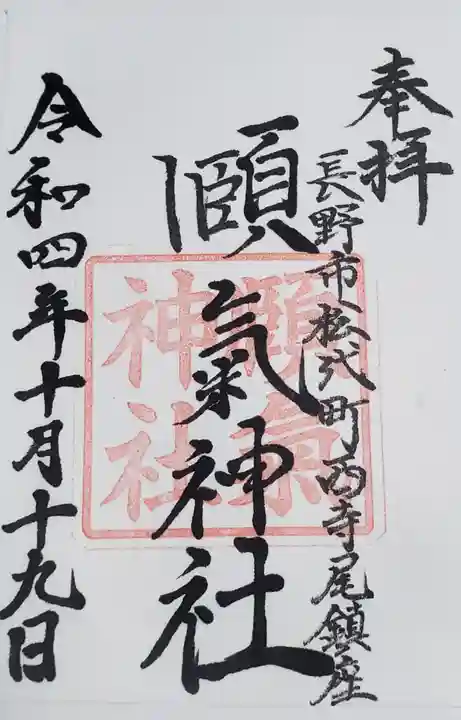 奉拝
長野市松代町西寺尾鎮座
頤氣神社
頤気神社
令和四年十月十九日